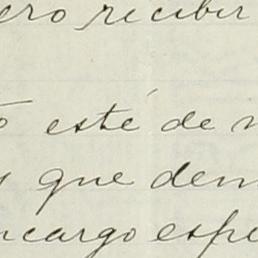 ero recibir
esté de
que dem
ncargo espe